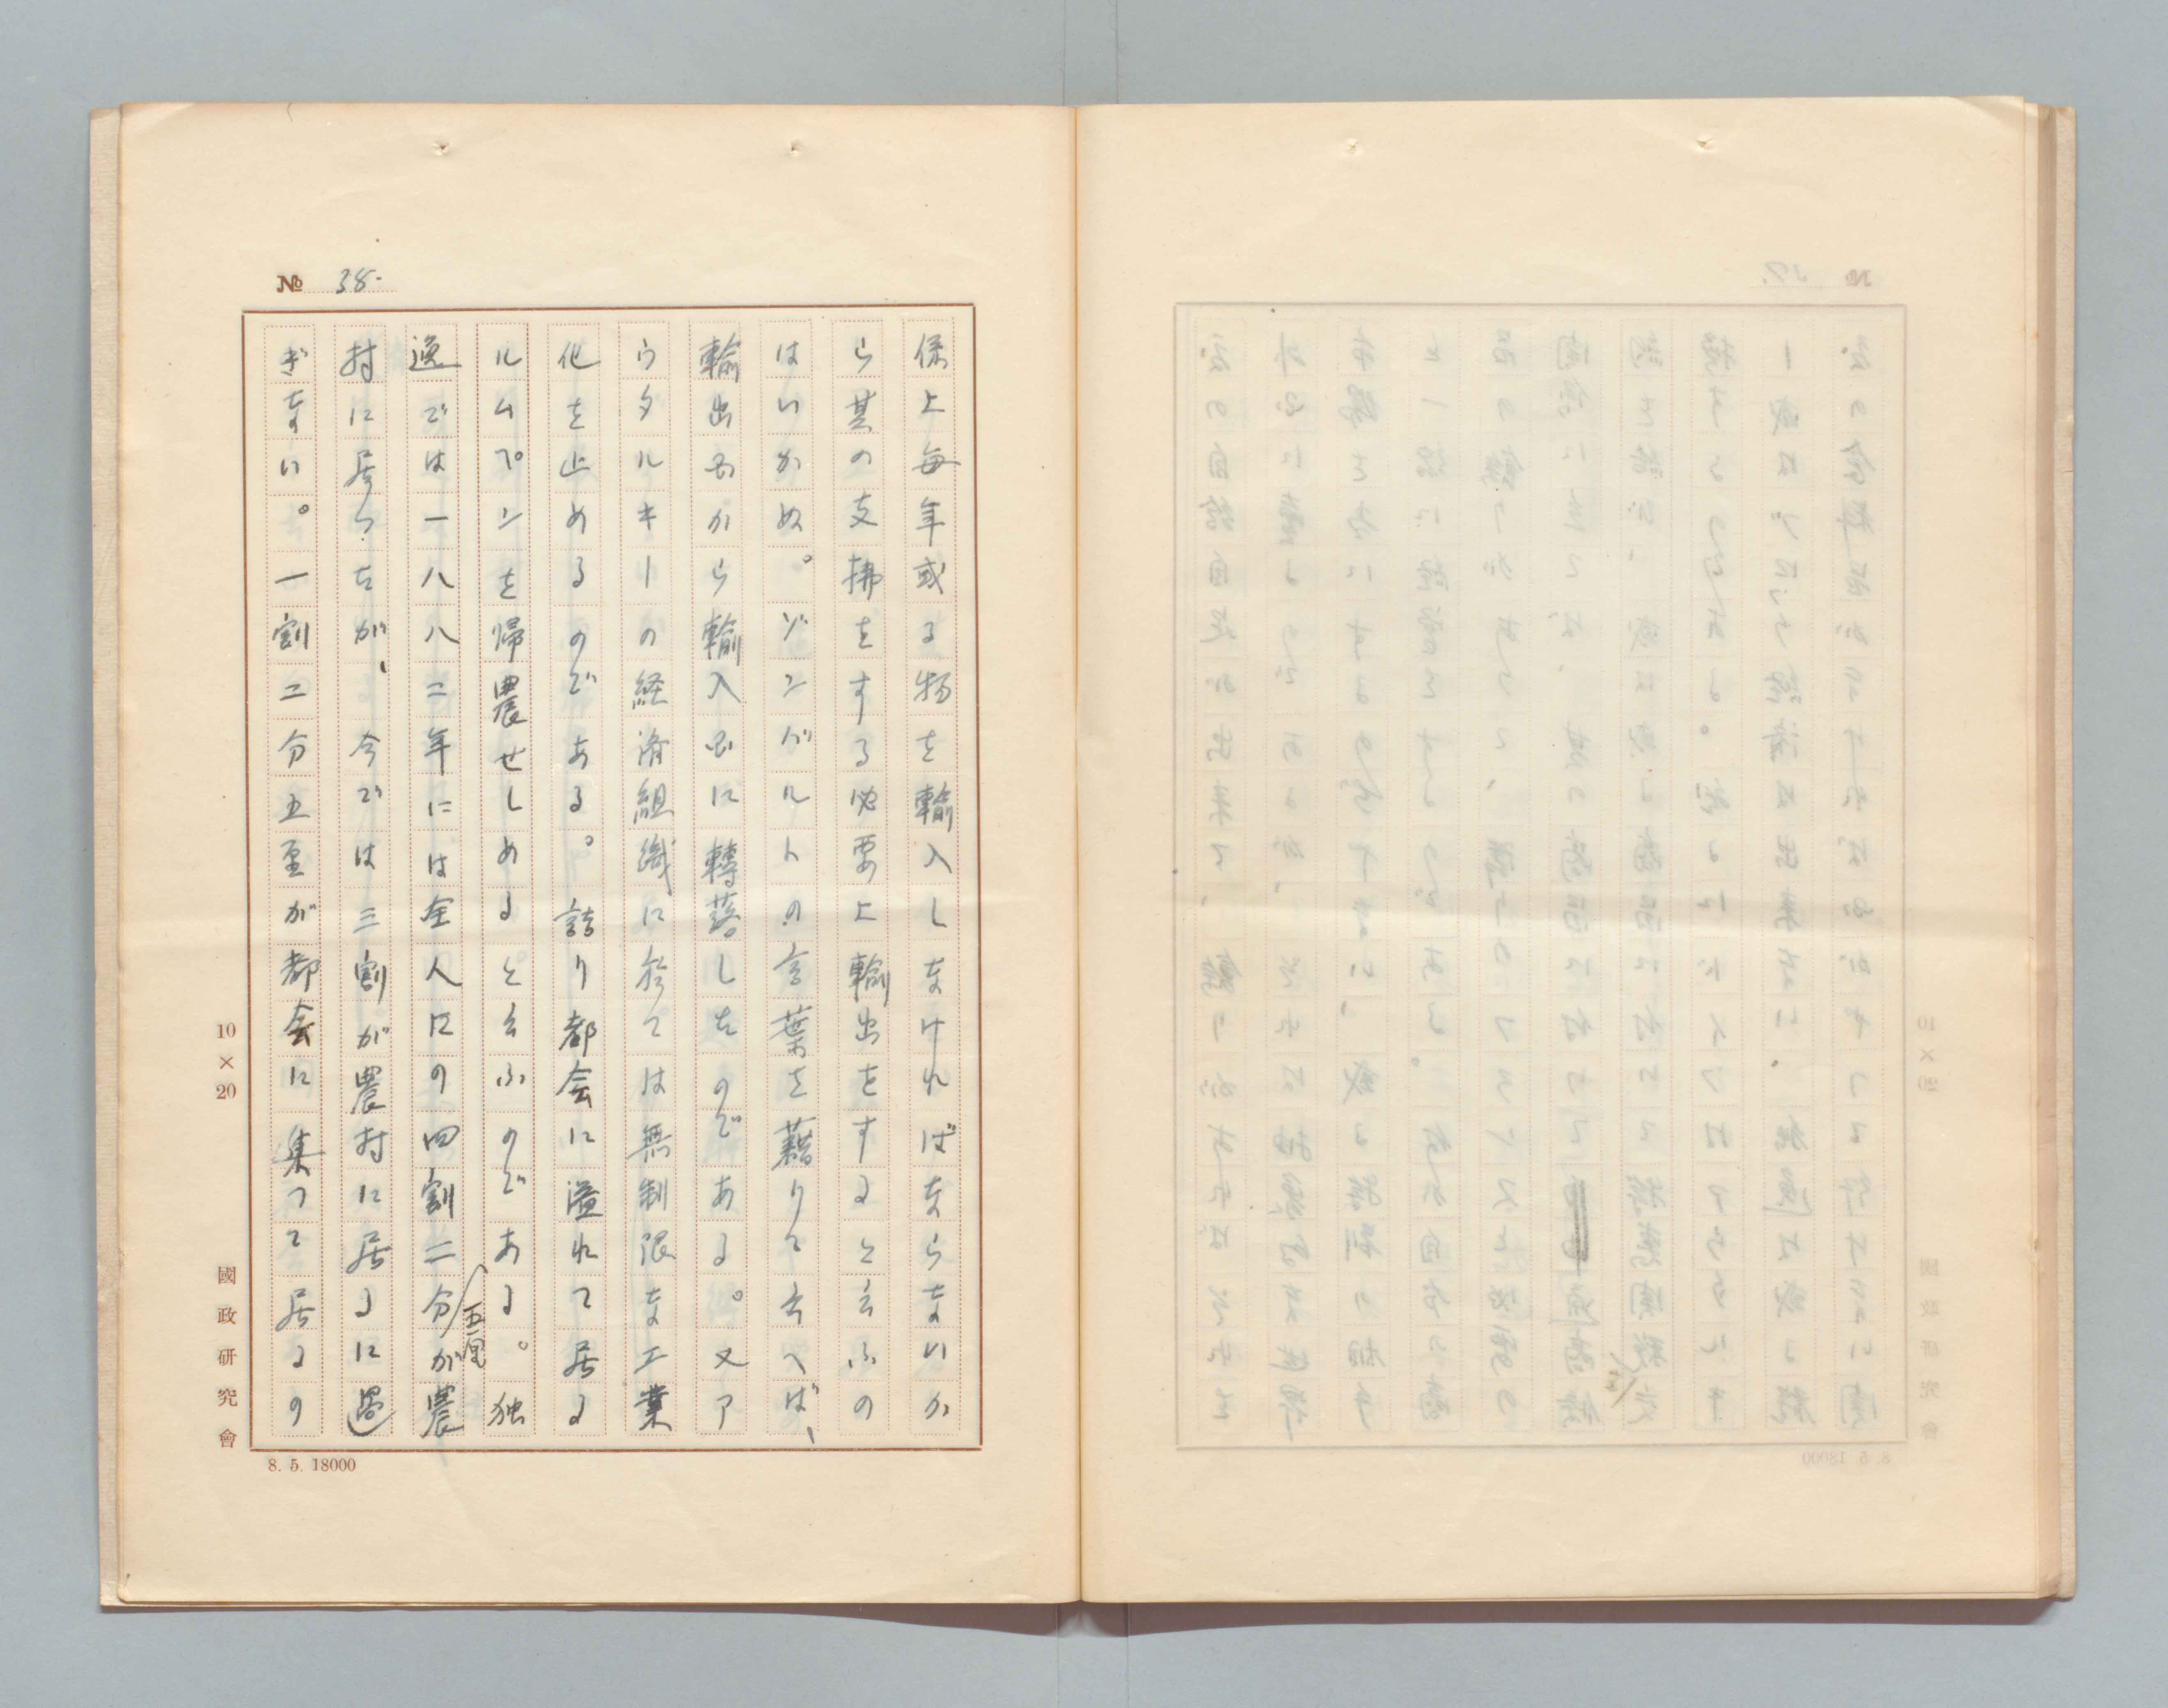 № 38.
係上毎年或る物を輸入しなければならないか
ら其の支拂をする必要上輸出をすると云ふの
はいかぬ。ゾンバルトの言葉を藉りて云へば、
輸出国から輸入国に轉落したのである。又ア
ウタルキーの経済組織に於ては無制限な工業
化を止めるのである。詰り都会に溢れて居る
ルムペンを帰農せしめると云ふのである。独
逸では一八八二年には全人口の四割二分五厘が農
村に居つたが、今では三割が農村に居るに過
ぎない。一割二分五厘が都会に集つて居るの
10×20
國政研究會
8. 5. 18000